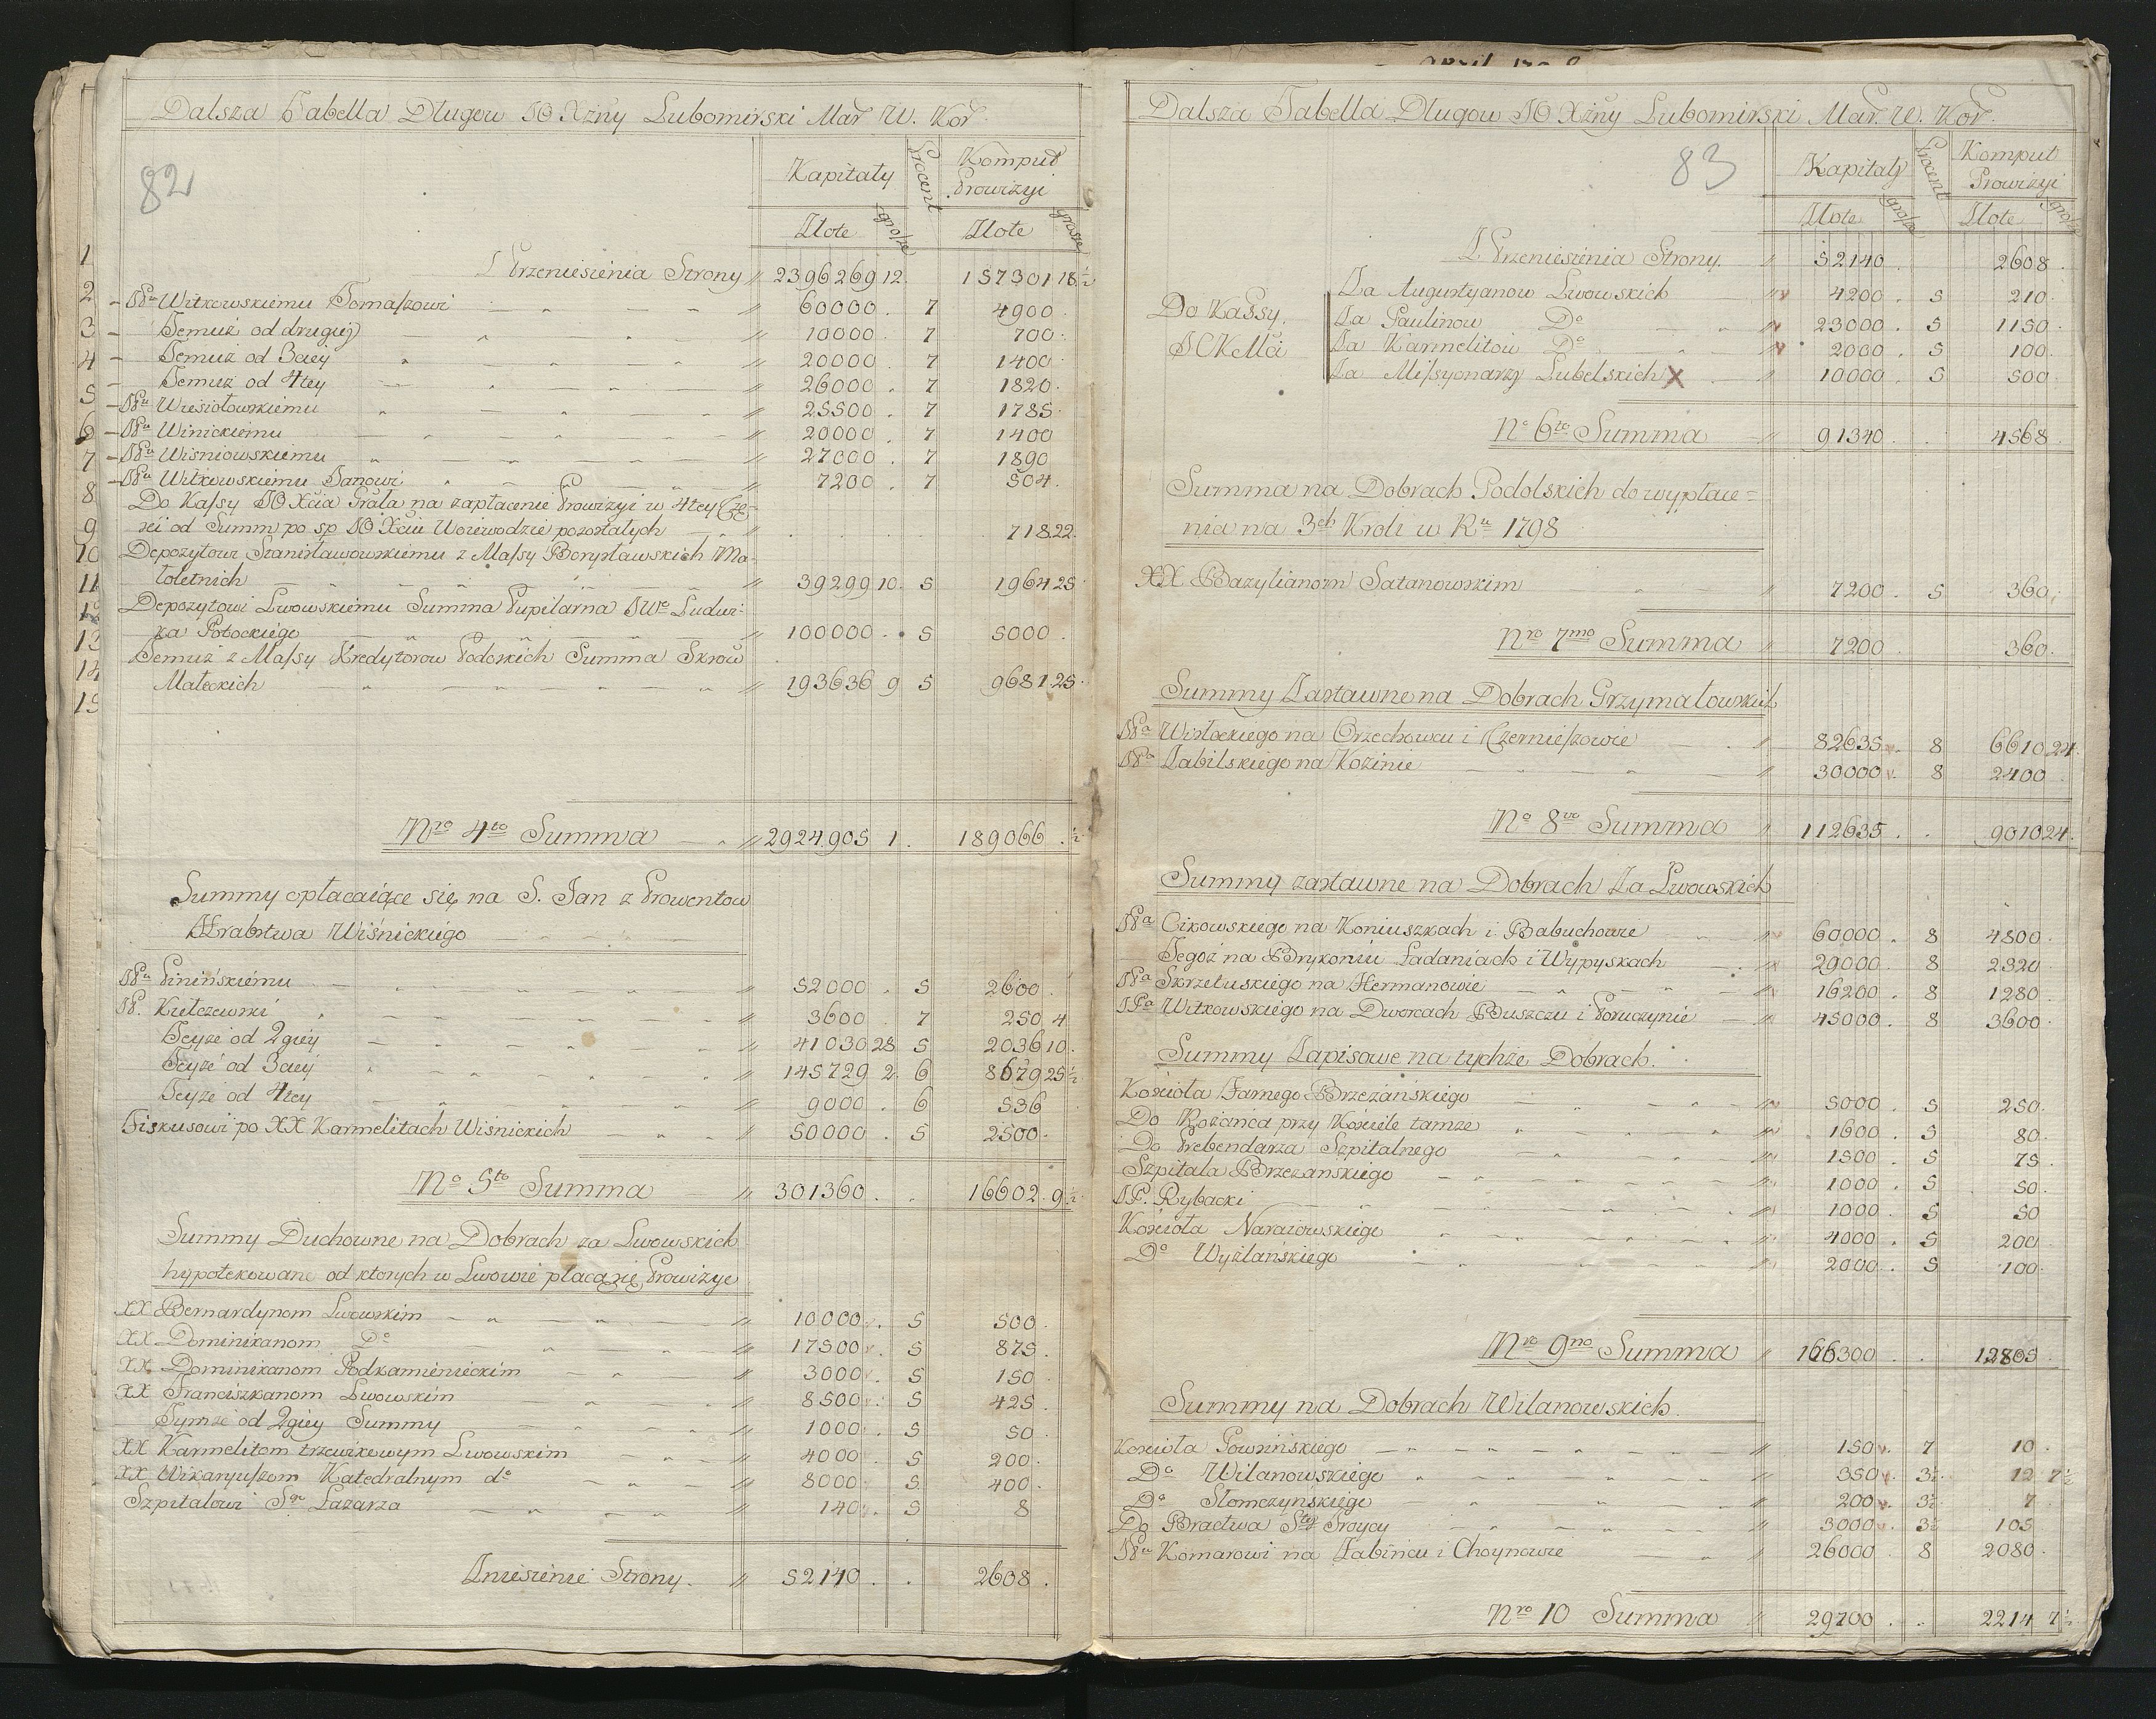 Dalsza Tabella Długow JO Xżny Lubomirski Mar W. Kor.
82
Kapitały Procent Komput Prowizyi
Złote grosze Złote grosze
Z Przeniesienia Strony 2396269 12. 157301 18 1/2
JPu Witkowskiemu Tomaszowi 60000. 7 4900.
Temuż od drugiéj 10000. 7 700.
Temuż od 3ciéy 20000. 7 1400.
Temuż od 4téy 26000. 7 1820.
JPu Wiesiołowskiemu 25500. 7 1785.
JPu Winickiemu 20000. 7 1400
JPu Wisniowskiemu 27000. 7 1890
JPu Witkowskiemu Janowi 7200. 7 504.
Do Kassy JO Xcia Grała na zapłacenie Prowizyi w 4téy Czę-
ści od Summ po sp JO Xciu Woiewodzie pozostałych 718 22.
Depozytowi Stanisławowskiemu z Massy Borysławskich Ma-
łoletnich 39299 10. 5 1964 25.
Depozytowi Lwowskiemu Summa Pupilarna JWo Ludwi-
ka Potockiego 100000. 5 5000.
Temuż z Massy Kredytorow Podoskich Summa Skrow
Małeckich 193636 9 5 9681 25.
Nro 4to Summa 2924905 1. 189066. 1/2
Summy opłacaiące się na S. Jan z Prowentow
Hrabstwa Wiśnickiego
JPu Pinińskiému 52000. 5 2600.
JP. Kiełczewski 3600 7 250 4
Teyże od 2giéy 41030 28 5 2036 10.
Teyże od 3ciéy 145729 2. 6 8679 25 1/2
Teyże od 4téy 9000. 6 536
Fiskusowi po XX Karmelitach Wiśnickich 50000. 5 2500.
No 5to Summa 301360. 16602. 9 1/2
Summy Duchowne na Dobrach za Lwowskich
hypotekowane od ktorych w Lwowie płacą się Prowizye
XX Bernardynom Lwowskim 10000. 5 500.
XX Dominikanom Do 17500. 5 875.
XX Dominikanom Podkamienieckim 3000. 5 150
XX Franciszkanom Lwowskim 8500. 5 425.
Tymże od 2giéy Summy 1000. 5 50.
XX Karmelitom trzewikowym Lwowskim 4000. 5 200.
XX Wikaryuszom Katedralnym do 8000. 5 400.
Szpitalowi Sgo Lazarza 140. 5 8
Zniesienie Strony. 52140. 2608.
1
2
3
4
5
6
7
8
9
10
11
12
13
14
15
Dalsza Tabella Długow JO Xżny Lubomirski Mar. W. Kor.
83
Kapitały Procent Komput Prowizyi
Złote grosze Złote grosze
Z Przeniesienia Strony. 52140 2608.
Do Kassy JCKMci
Za Augustyanow Lwowskich 4200. 5 210.
Za Paulinow Do 23000. 5 1150.
Za Karmelitow Do 2000. 5 100.
Za Missyonarzy Lubelskich X 10000. 5 500.
No 6to Summa 91340. 4568.
Summa na Dobrach Podolskich do wypłace=
nia na 3ch Kroli w Ru 1798
XX Bazylianom Satanowskim 7200. 5 360.
Nro 7mo Summa 7200 360.
Summy Zastawne na Dobrach Grzymałowskich
JPa Wisłockiego na Orzechowcu i Czernieszowie 82635. 8 6610 24.
JPa Zabilskiego na Kozinie 30000. 8 2400.
No 8vo Summa 112635. 9010 24.
Summy zastawne na Dobrach Za Lwowskich
JPa Cikowskiego na Koniuszkach i Babuchowie 60000. 8 4800.
Tegoż na Brykoniu Ładaniach i Wypyskach 29000. 8 2320
JPa Skrzetuskiego na Hermanowie 16200. 8 1280.
JPa Witkowskiego na Dworcach Buszczu i Poruczynie 45000. 8 3600.
Summy Zapisowe na tychże Dobrach.
Kościoła Farnego Brzezańskiego 5000. 5 250.
Do Rożańca przy Kościele tamże 1600. 5 80.
Do Prebendarza Szpitalnego 1500. 5 75.
Szpitala Brzezanskiego 1000. 5 50.
JP. Rybacki 1000. 5 50
Kościoła Naraiowskiego 4000. 5 200
Do Wyżlańskiego 2000. 5 100.
Nro 9no Summa 166300. 12805.
Summy na Dobrach Wilanowskich.
Kościoła Powsińskiego 150. 7 10.
Do Wilanowskiego 350. 3 1/2 12 7 1/2
Do Słomczyńskiego 200. 3 1/2 7.
Do Bractwa Stéj Troycy 3000. 3 1/2 105
JPu Komarowi na Żabińcu i Choynowie 26000. 8 2080.
Nro 10 Summa 29700. 2214 7 1/2